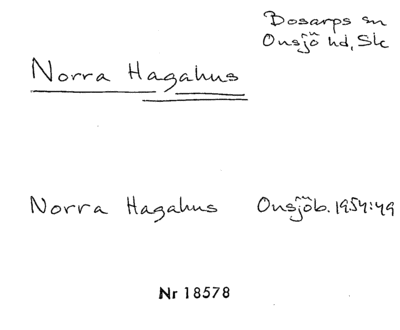 Bosarps sn
Onsjö hd, Sk
Norra Hagahus
Norra Hagahus Onsjöb. 1954:49
Nr 18578